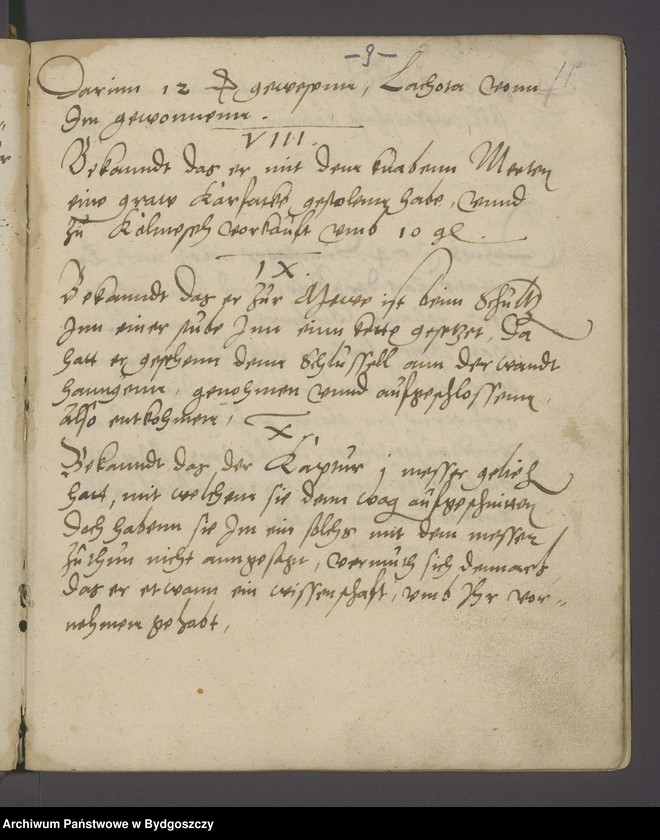 -9-
11
Darinn 12 gewesenn, Lachota vonn
Im gewonnenn.
VIII.
Bekanndt das er mit dem knabenn Merten
eine graw gestolenn habe, vnnd
zu Kolmensch vorkaufft vmb 10 gl.
IX.
Bekanndt das er zur Mewe ist beim Schultz
Inn einer stube Inn einn kette gesetzet, Da
hatt er gesehenn denn Schlussell ann der wandt
hanngenn, genohmen vnnd aufgeschlossenn,
also entkohmen,
X
Bekanndt das der Kaptur j messer gelieh
hatt, mit welchem sie denn wag aufgeschnitten
Doch habenn sie Im ein solchs mit dem messer
zuthun nicht anngesagt, vermuth sich dennach
das er etwann ein wissenschaft, vmb Ihr vor-
nehmen gehabt,
Archiwum Państwowe w Bydgoszczy